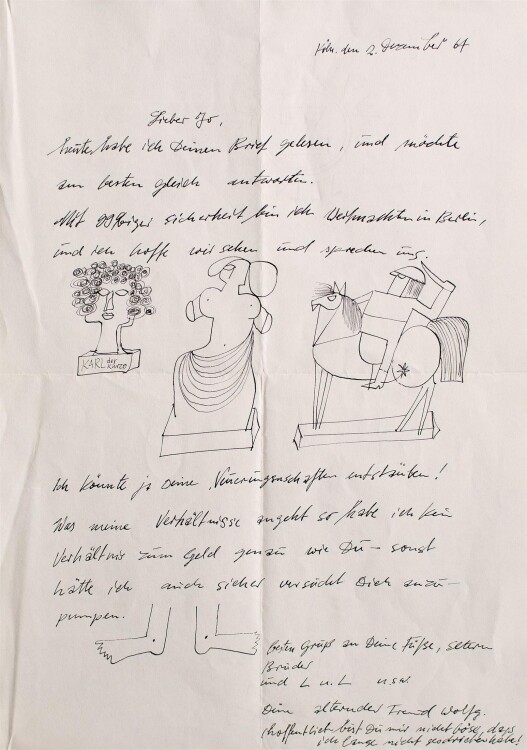 Köln. den 2. Dezember 64
Lieber Jo,
heute habe ich Deinen Brief gelesen, und möchte
am besten gleich antworten.
Mit 99%iger sicherheit bin ich Weihnachten in Berlin,
und ich hoffe wir sehen und sprechen uns.
KARL der KURZE
Ich könnte ja Deine entstauben!
Was meine Verhältnisse angeht so habe ich kein
Verhältnis zum Geld genau wie Du – sonst
hätte ich auch sicher versucht Dich anzu-
pumpen.
besten Gruß an Deine Füße, Eltern
Brüder
und L u. L u.s.w.
Dein alternder Freund Wolfg.
(hoffentlich bist Du mir nicht böse, daß
ich lange nicht geschrieben habe)